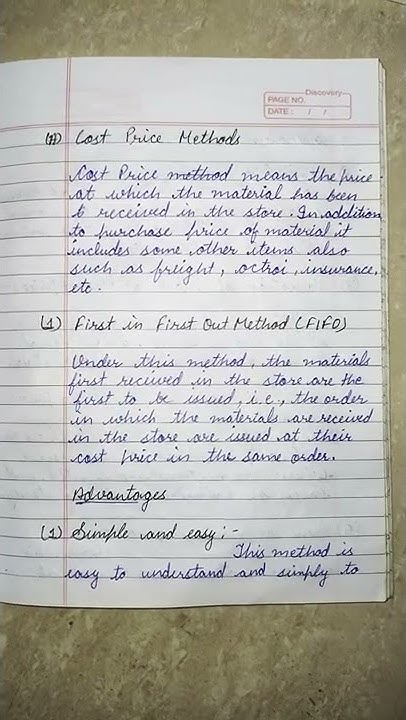 Discovery
PAGE NO.
DATE : / /
(A) Cost Price Methods
Cost Price method means the price
at which the material has been
t received in the store. In addition
to purchase price of material it
includes some other items also
such as freight, octroi, insurance,
etc.
(1) First in First Out Method (FIFO)
Under this method, the materials
first received in the store are the
first to be issued, i.e., the order
in which the materials are received
in the store are issued at their
cost price in the same order.
Advantages
(1) Simple and easy :-
This method is
easy to understand and simply to